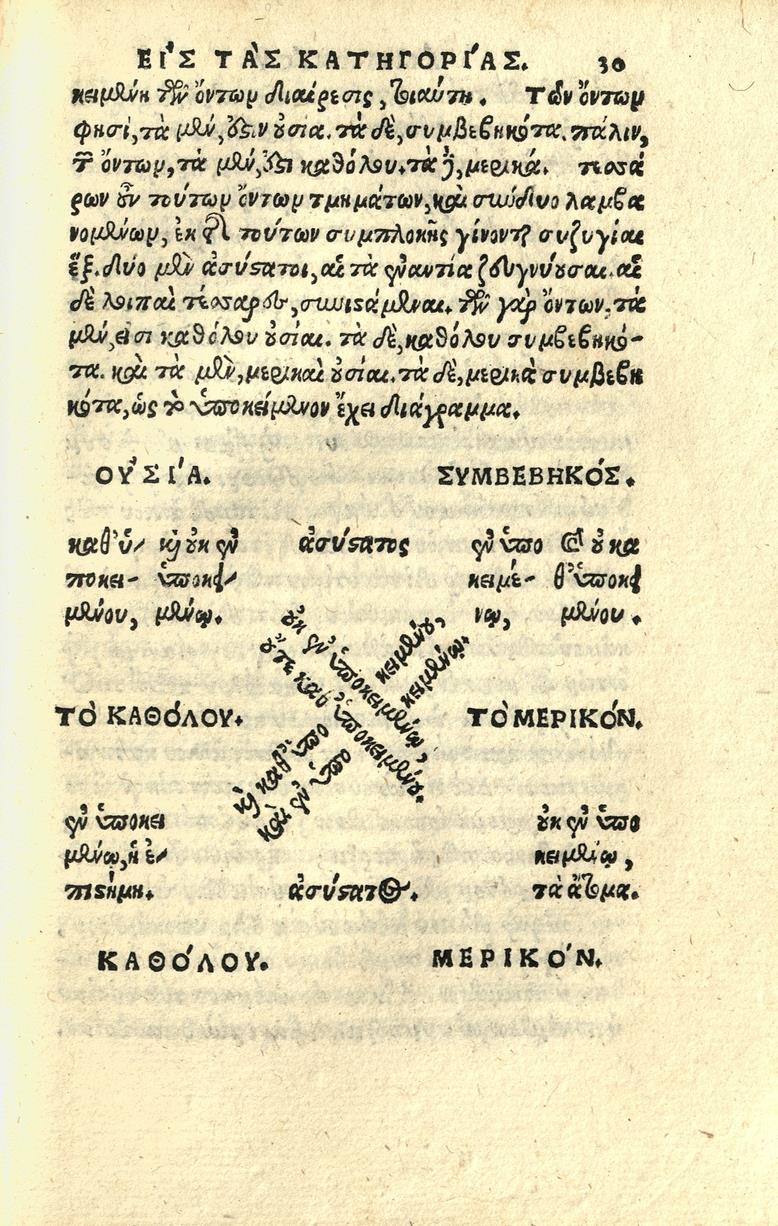 ΕΙ᾿Σ ΤΑ᾿Σ ΚΑΤΗΓΟΡΙ´ΑΣ. 30
κειμένη τῶν ὄντων διαίρεσις, τοιαύτη. Τῶν ὄντων
φησὶ, τὰ μὲν, ὅστιν οὐσία. τὰ δὲ, συμβεβηκότα. πάλιν,
τῶν ὄντων, τὰ μὲν, ὅστι καθόλου. τὰ δὲ, μερικά. τεσσά
ρων οὖν τούτων ὄντων τμημάτων, καὶ σὺν δύο λαμβα
νομένων, ἐκ τῆς τούτων συμπλοκῆς γίνονται συζυγίαι
ἕξ. δύο μὲν ἀσύστατοι, αἱ τὰ ἐναντία ζευγνύουσαι. αἱ
δὲ λοιπαὶ τέσσαρες, συνιστάμεναι. τῶν γὰρ ὄντων, τὰ
μὲν, εἰσι καθόλου οὐσίαι. τὰ δὲ, καθόλου συμβεβηκό-
τα. καὶ τὰ μὲν, μερικαὶ οὐσίαι. τὰ δὲ, μερικὰ συμβεβη
κότα, ὡς τὸ ὑποκείμενον ἔχει διάγραμμα.
ΟΥ᾿ΣΙ´Α. ΣΥΜΒΕΒΗΚΟ´Σ.
καθ' ὑ- καὶ οὐκ ἐν ἀσύστατος ἐν ὑπο καὶ οὐ κα
ποκει- ὑποκει- κειμέ- θ' ὑποκει
μένου, μένῳ. νῳ, μένου.
οὐκ ἐν ὑποκειμένῳ,
οὔτε καθ' ὑποκειμένου.
καὶ καθ' ὑπο κειμένου,
καὶ ἐν ὑπο κειμένῳ.
ΤΟ` ΚΑΘΟ´ΛΟΥ. ΤΟ` ΜΕΡΙΚΟ´Ν.
ἐν ὑποκει οὐκ ἐν ὑπο
μένῳ, ἡ ἐ- κειμένῳ,
πιστήμη. ἀσύστατος. τὰ ἄτομα.
ΚΑΘΟ´ΛΟΥ. ΜΕΡΙΚΟ´Ν.